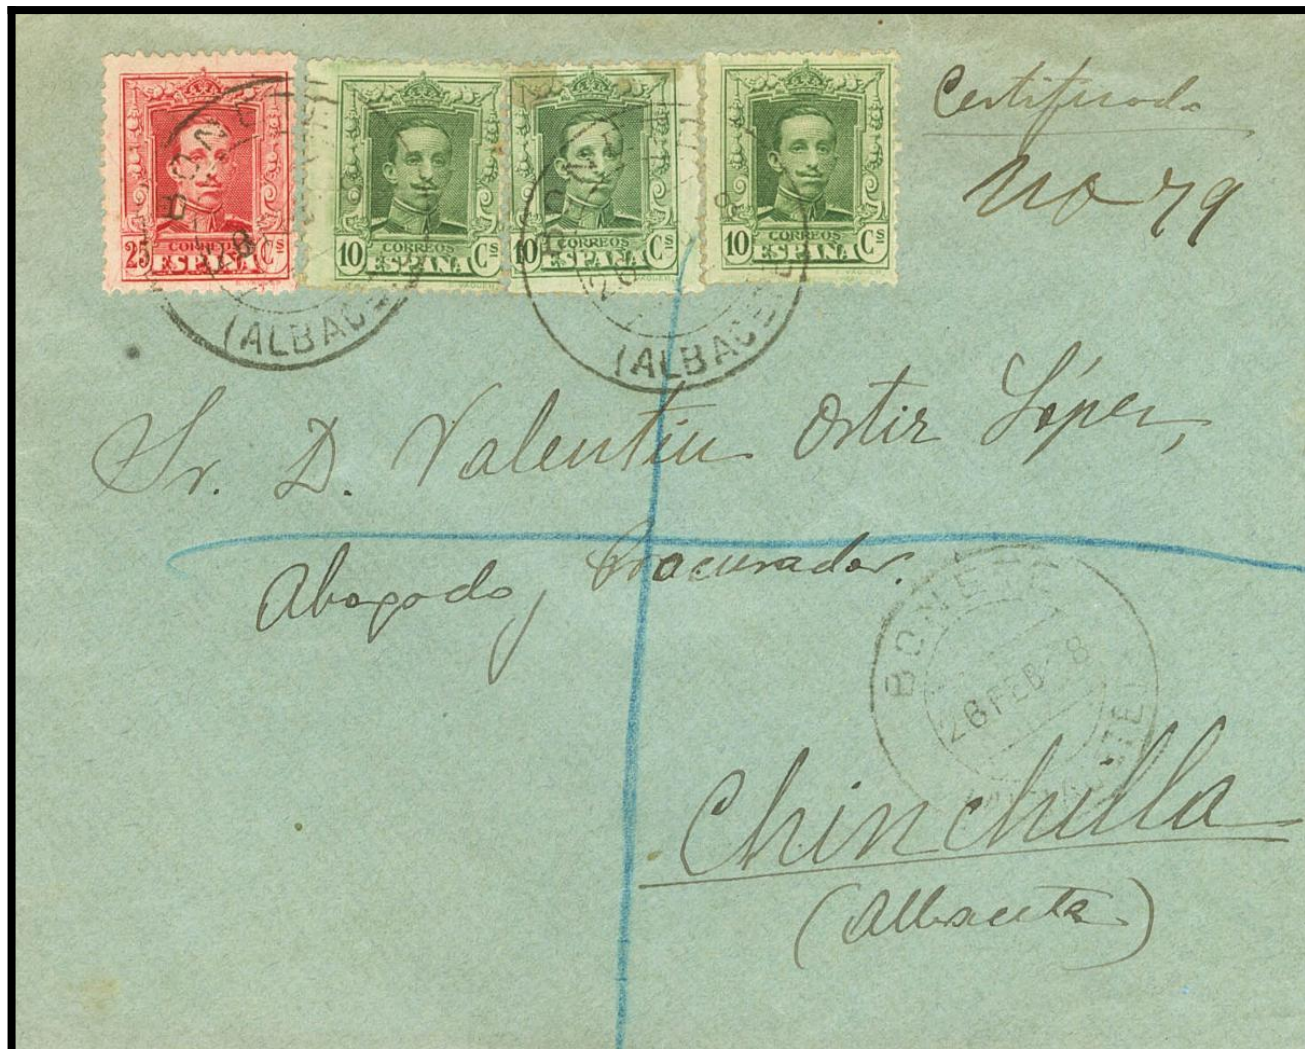 Certificado
No 79
25 CORREOS ESPAÑA Cs
10 CORREOS ESPAÑA Cs
10 CORREOS ESPAÑA Cs
10 CORREOS ESPAÑA Cs
(ALBACE
(ALBACE
Sr. D. Valentin Ortiz López,
Abogado, Procurador.
BONETE
26 FEB 28
Chinchilla
(Albacete)